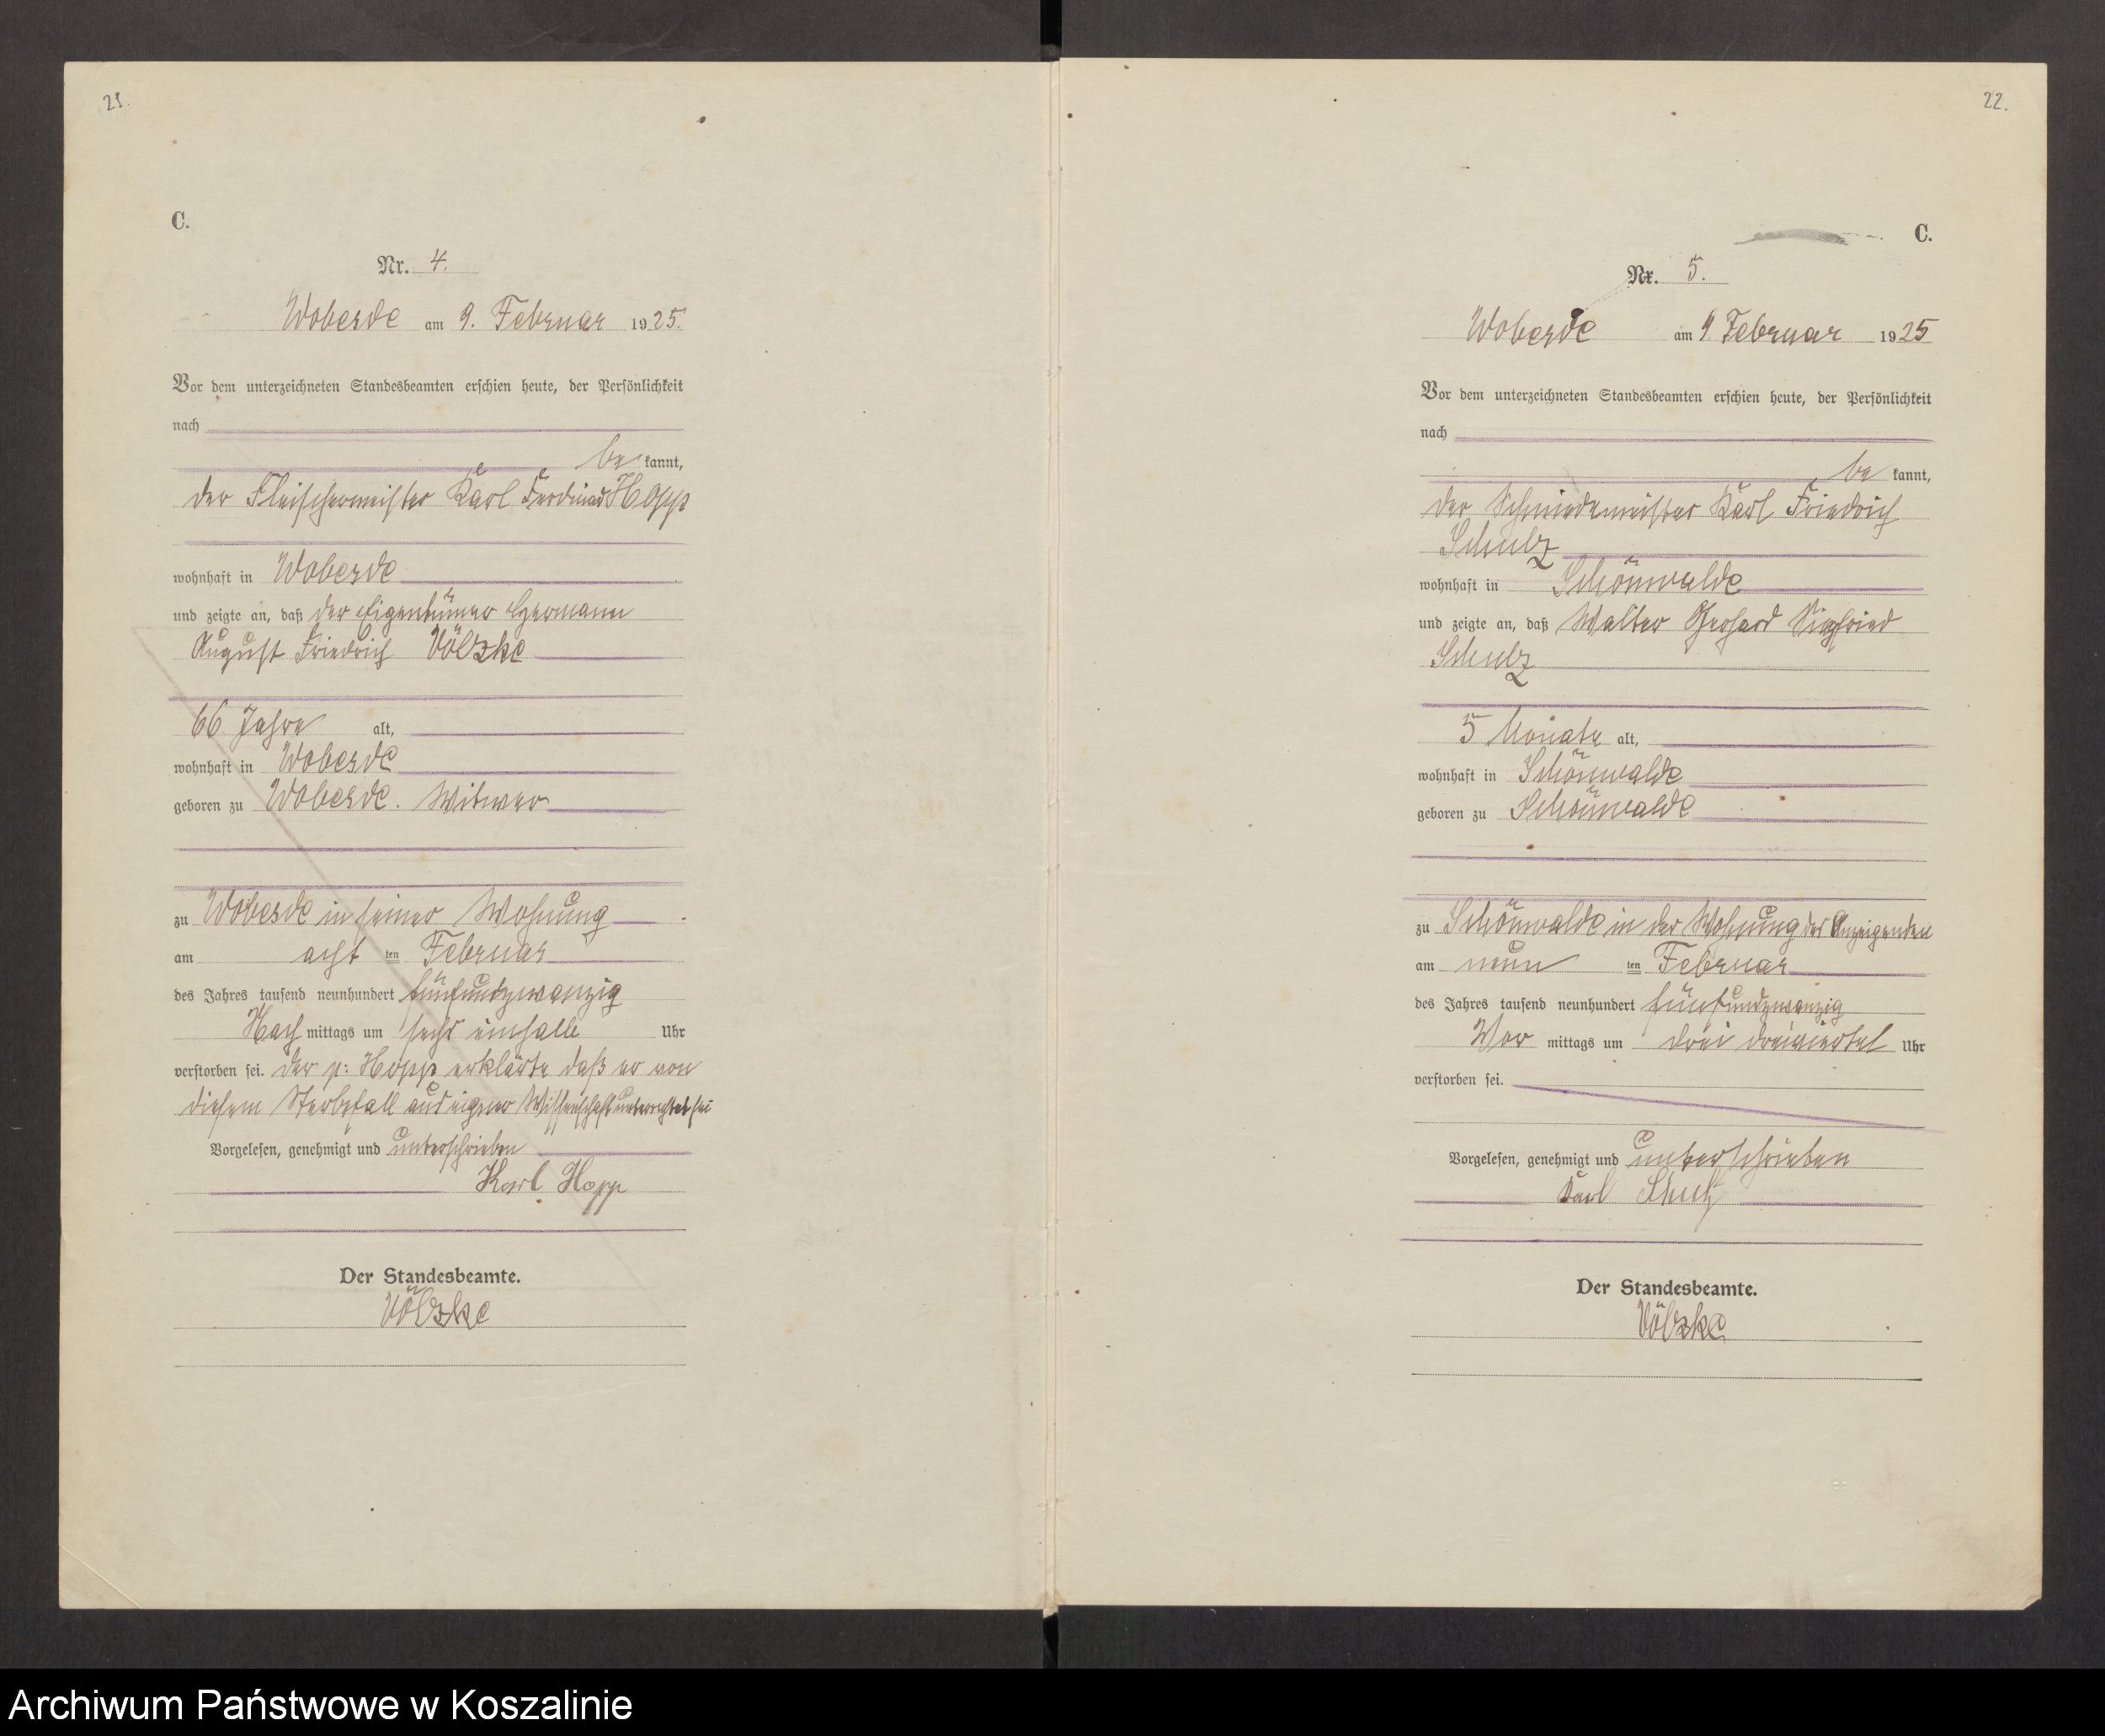 21.
C.
Nr. 4.
Woberde am 9. Februar 1925.
Vor dem unterzeichneten Standesbeamten erschien heute, der Persönlichkeit
nach
be kannt,
der Fleischermeister Karl Ferdinad Hopp
wohnhaft in Woberde
und zeigte an, daß der Eigentümer Hermann
August Friedrich Völzke
66 Jahre alt,
wohnhaft in Woberde
geboren zu Woberde. Witwer
zu Woberde in seiner Wohnung
am acht ten Februar
des Jahres tausend neunhundert fünfundzwanzig
Nach mittags um sechs einhalb Uhr
verstorben sei. Der p: Hopp erklärte daß er von
diesem Sterbefall aus eigner Wissenschaft unterrichtet sei
Vorgelesen, genehmigt und unterschrieben
Karl Hopp
Der Standesbeamte.
Völzke
22.
C.
Nr. 5.
Woberde am 9 Februar 1925
Vor dem unterzeichneten Standesbeamten erschien heute, der Persönlichkeit
nach
be kannt,
der Schmiedemeister Karl Friedrich
Schulz
wohnhaft in Schönwalde
und zeigte an, daß Walter Gerhard Siegfried
Schulz
5 Monate alt,
wohnhaft in Schönwalde
geboren zu Schönwalde
zu Schönwalde in der Wohnung des Anzeigenden
am neun ten Februar
des Jahres tausend neunhundert fünfundzwanzig
Vor mittags um drei dreiviertel Uhr
verstorben sei.
Vorgelesen, genehmigt und unterschrieben
Karl Schulz
Der Standesbeamte.
Völzke
Archiwum Państwowe w Koszalinie